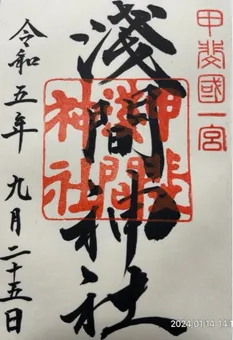 甲斐國一宮
淺間神社
甲斐
淺間
神社
令和五年 九月二十五日
2024/01/14 14:1